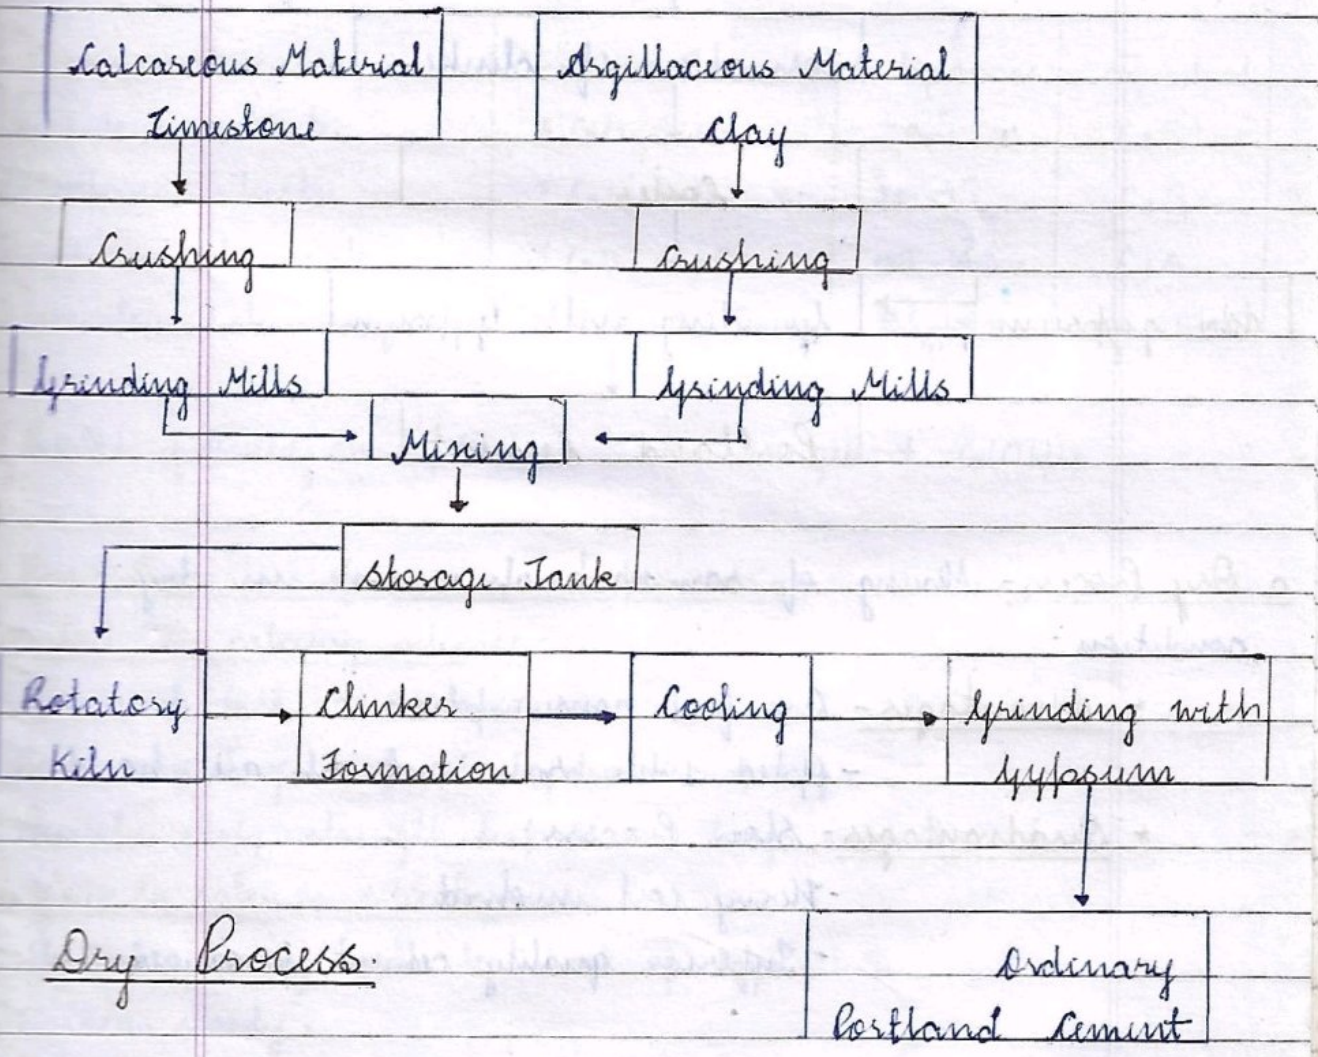 Calcareous Material
Limestone
Argillaceous Material
Clay
Crushing
Crushing
Grinding Mills
Grinding Mills
Mixing
Storage Tank
Rotatory
Kiln
Clinker
Formation
Cooling
Grinding with
Gypsum
Dry Process.
Ordinary
Portland Cement